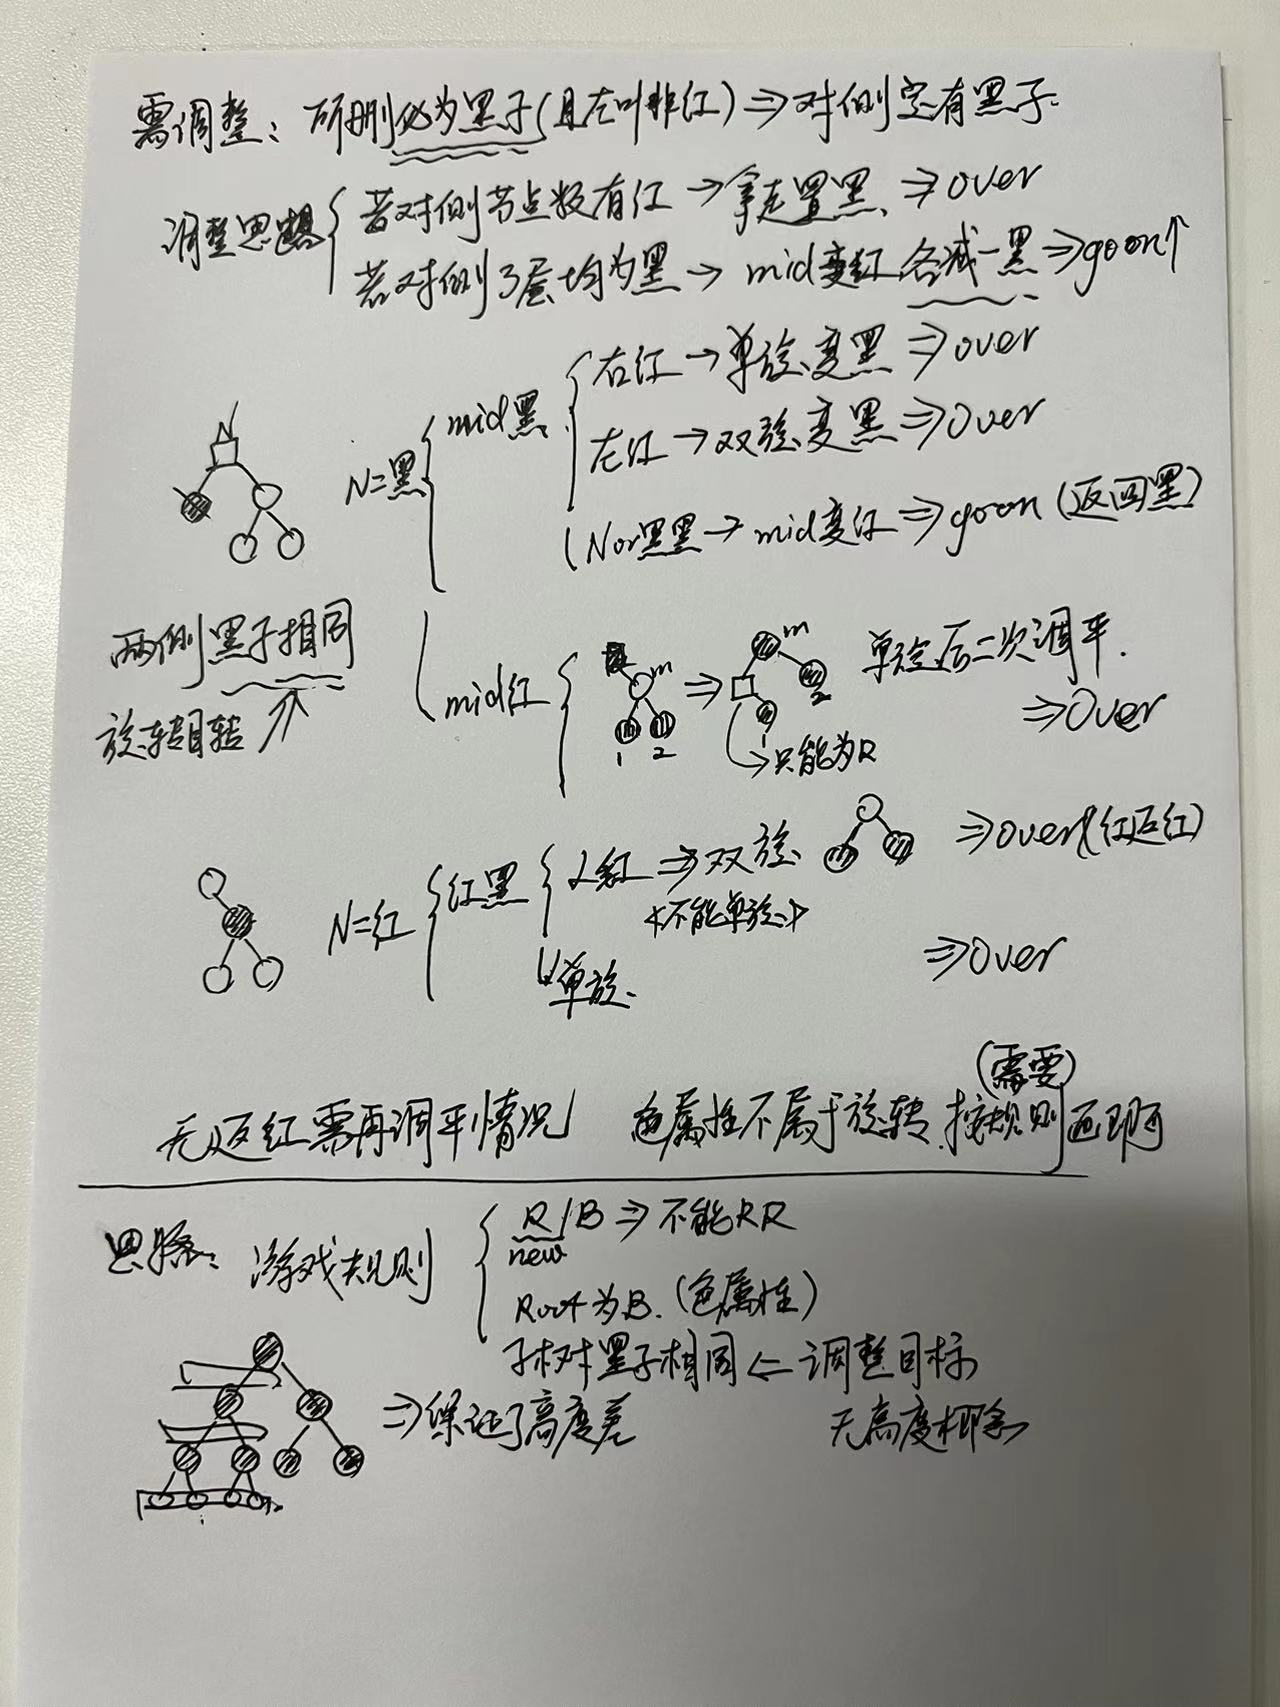 需调整：所删必为黑子（且左叶非红）⇒对侧定有黑子.
调整思想{若对侧节点数有红→拿走置黑 ⇒over
若对侧3层均为黑→mid变红 各减一黑⇒goon↑
N
N=黑{mid黑{右红→单旋变黑⇒over
左红→双旋变黑⇒over
Nor黑黑→mid变红⇒goon（返回黑）
两侧黑子相同
旋转目转
mid红{
m
1 2
⇒
m
1 2
→只能为R
单旋后二次调平.
⇒over
N=红{红黑{
红⇒双旋
<不能单旋>
⇒over（红返红）
单旋.
⇒over
无返红需再调平情况
色属性不属于旋转.按规则
（需要）
思路：游戏规则{R/B⇒不能RR
new
Root为B.（色属性）
子树黑子相同←调整目标
⇒保证了高度差
无高度概念